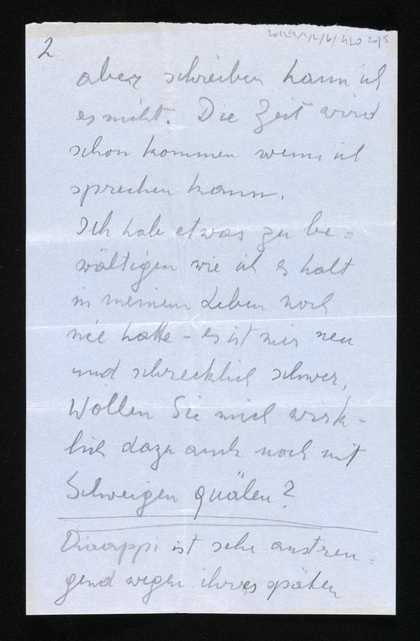 2
aber schreiben kann ich
es nicht. Die Zeit wird
schon kommen wenn ich
sprechen kann.
Ich habe etwas zu be=
wältigen wie ich es halt
in meinem Leben noch
nie hatte - es ist mir neu
und schrecklich schwer,
Wollen Sie mich wirk-
lich dazu auch noch mit
Schweigen quälen?
ist sehr anstren=
gend wegen ihres späten